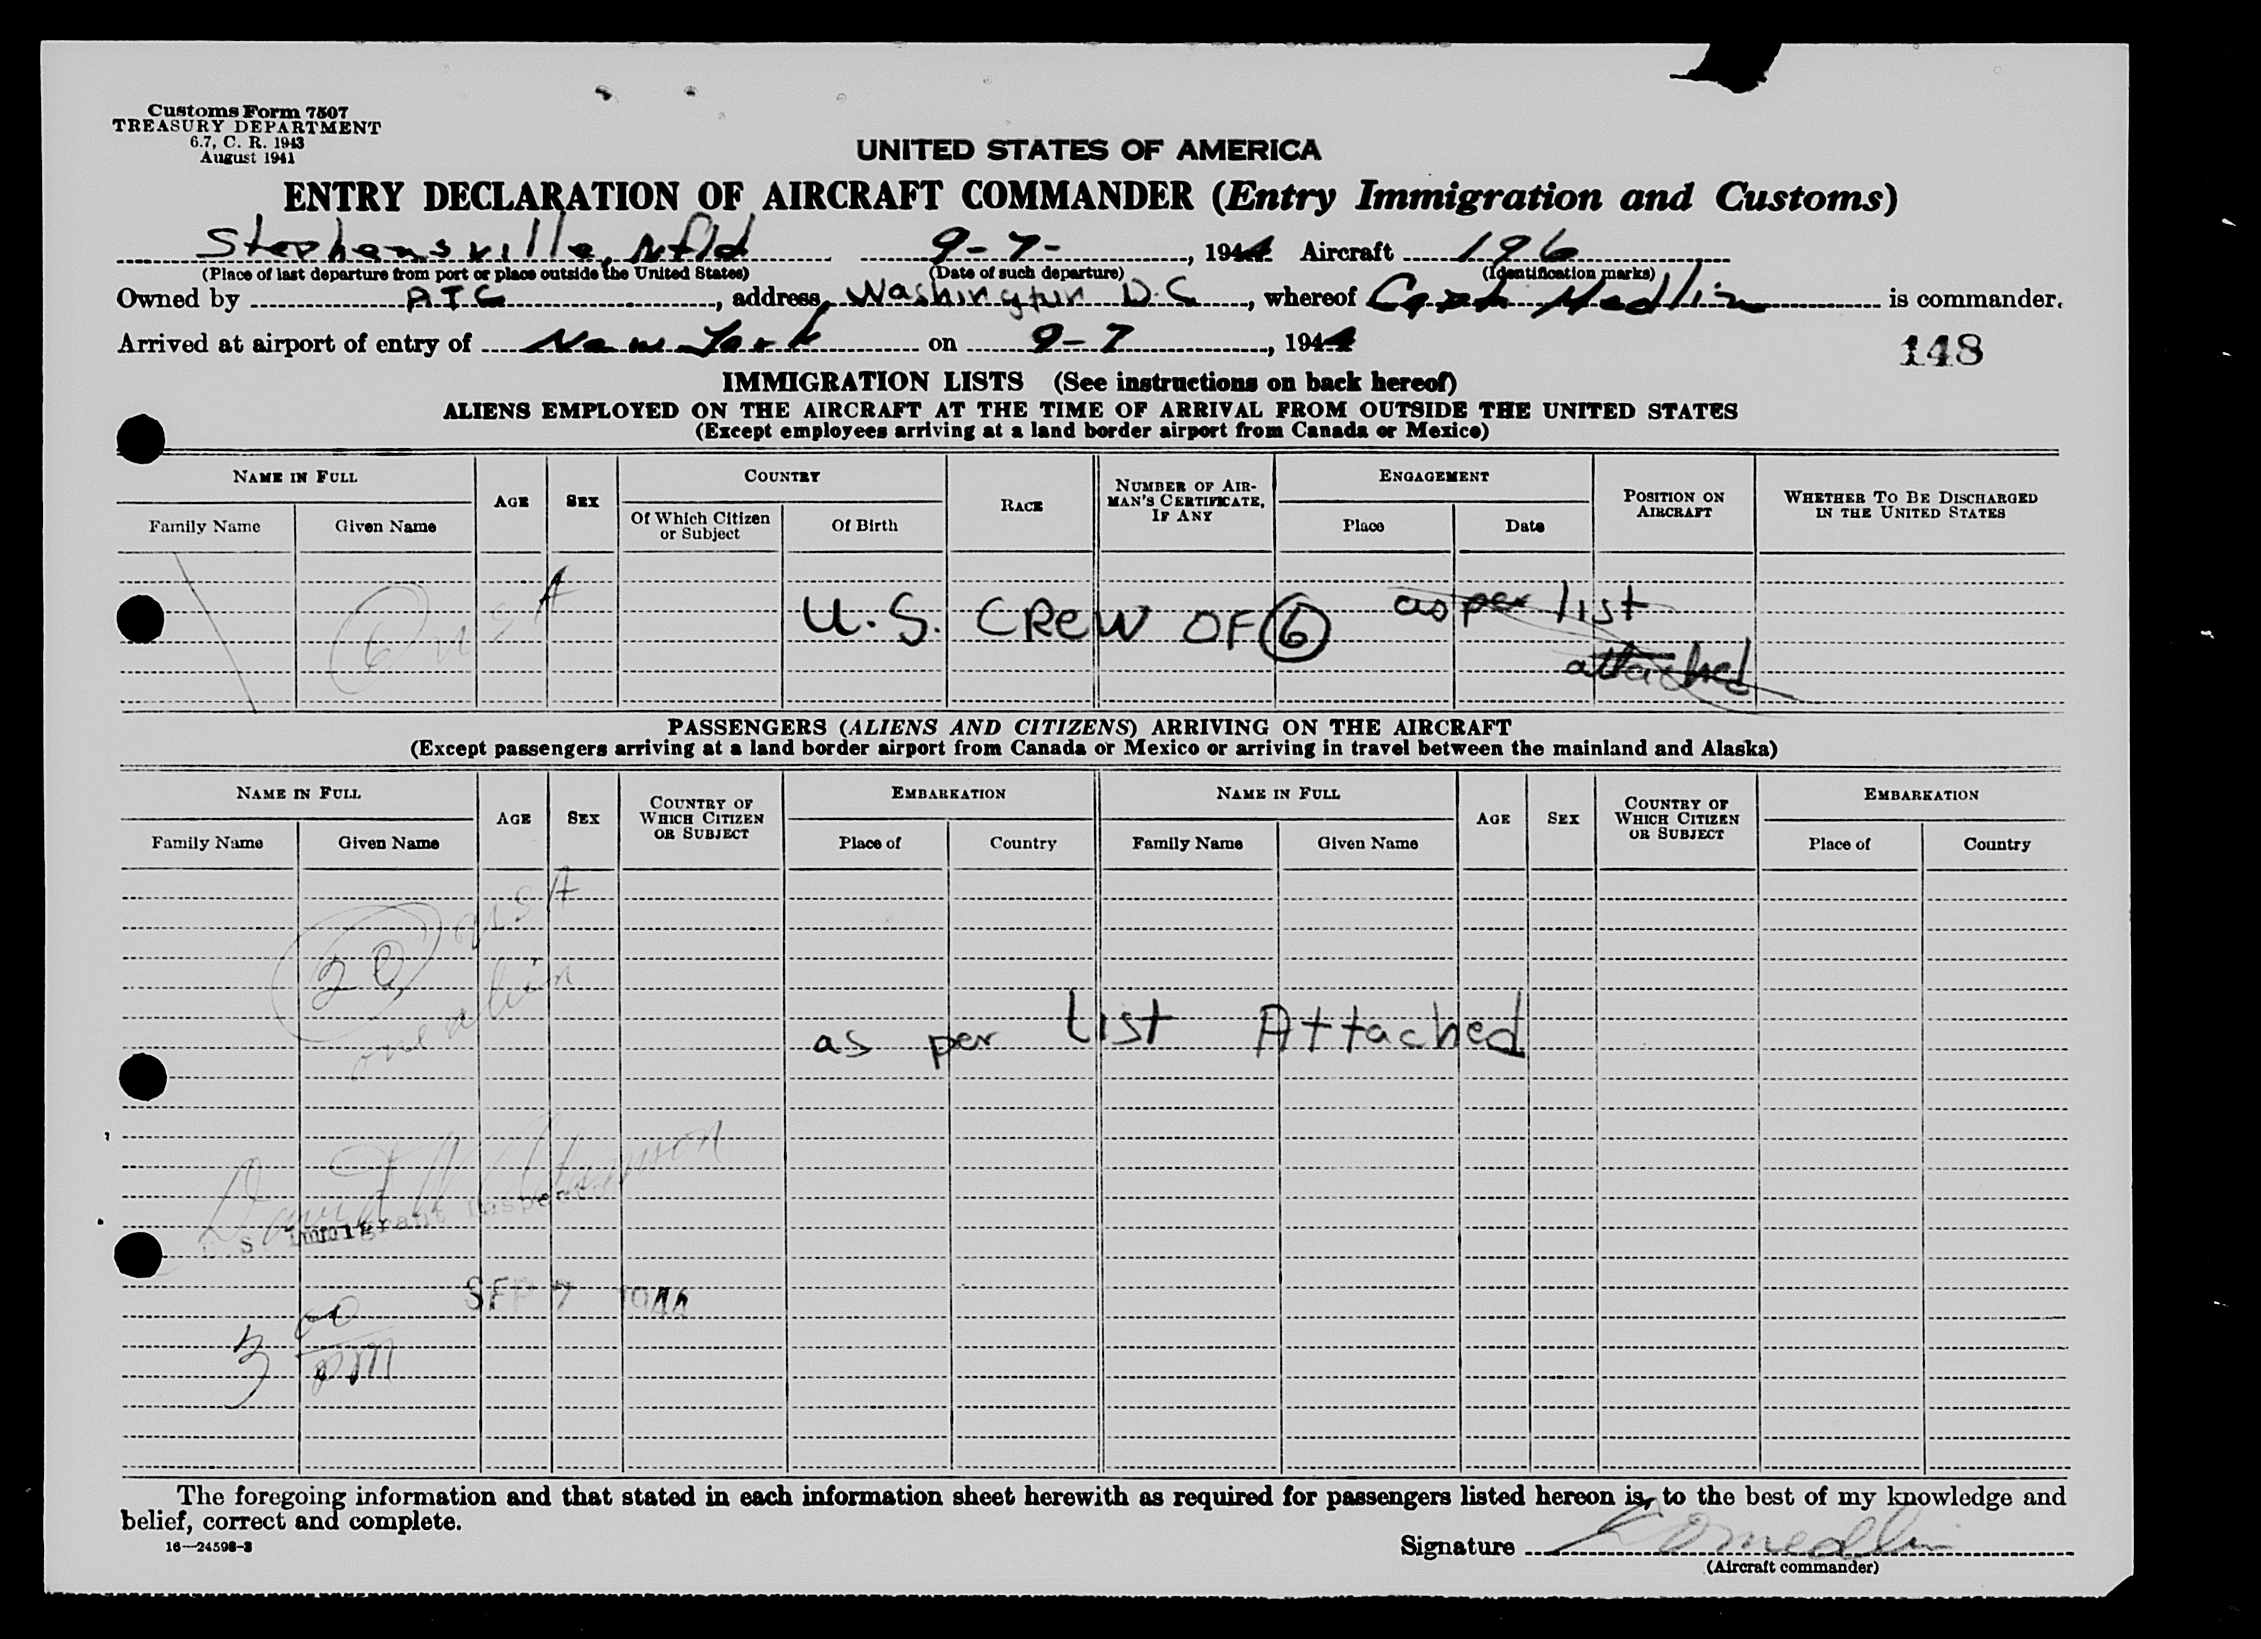 Customs Form 7507
TREASURY DEPARTMENT
6.7, C. R. 1943
August 1941
UNITED STATES OF AMERICA
ENTRY DECLARATION OF AIRCRAFT COMMANDER (Entry Immigration and Customs)
Stephensville, Nfld 9-7-, 1944 Aircraft 196
(Place of last departure from port or place outside the United States) (Date of such departure) (Identification marks)
Owned by ATC, address, Washington D.C, whereof Capt Medlin is commander.
Arrived at airport of entry of New York on 9-7, 1944
148
IMMIGRATION LISTS (See instructions on back hereof)
ALIENS EMPLOYED ON THE AIRCRAFT AT THE TIME OF ARRIVAL FROM OUTSIDE THE UNITED STATES
(Except employees arriving at a land border airport from Canada or Mexico)
NAME IN FULL AGE SEX COUNTRY RACE NUMBER OF AIRMAN'S CERTIFICATE, IF ANY ENGAGEMENT POSITION ON AIRCRAFT WHETHER TO BE DISCHARGED IN THE UNITED STATES
Family Name Given Name Of Which Citizen or Subject Of Birth Place Date
6 USA
U.S. CREW OF 6 as per list
attached
PASSENGERS (ALIENS AND CITIZENS) ARRIVING ON THE AIRCRAFT
(Except passengers arriving at a land border airport from Canada or Mexico or arriving in travel between the mainland and Alaska)
NAME IN FULL AGE SEX COUNTRY OF WHICH CITIZEN OR SUBJECT EMBARKATION NAME IN FULL AGE SEX COUNTRY OF WHICH CITIZEN OR SUBJECT EMBARKATION
Family Name Given Name Place of Country Family Name Given Name Place of Country
20 USA
one alien
as per List Attached
David
U S Immigrant Inspector
SEP 7 1944
3 00 pm
The foregoing information and that stated in each information sheet herewith as required for passengers listed hereon is, to the best of my knowledge and
belief, correct and complete.
16—24598-2
Signature Medlin
(Aircraft commander)